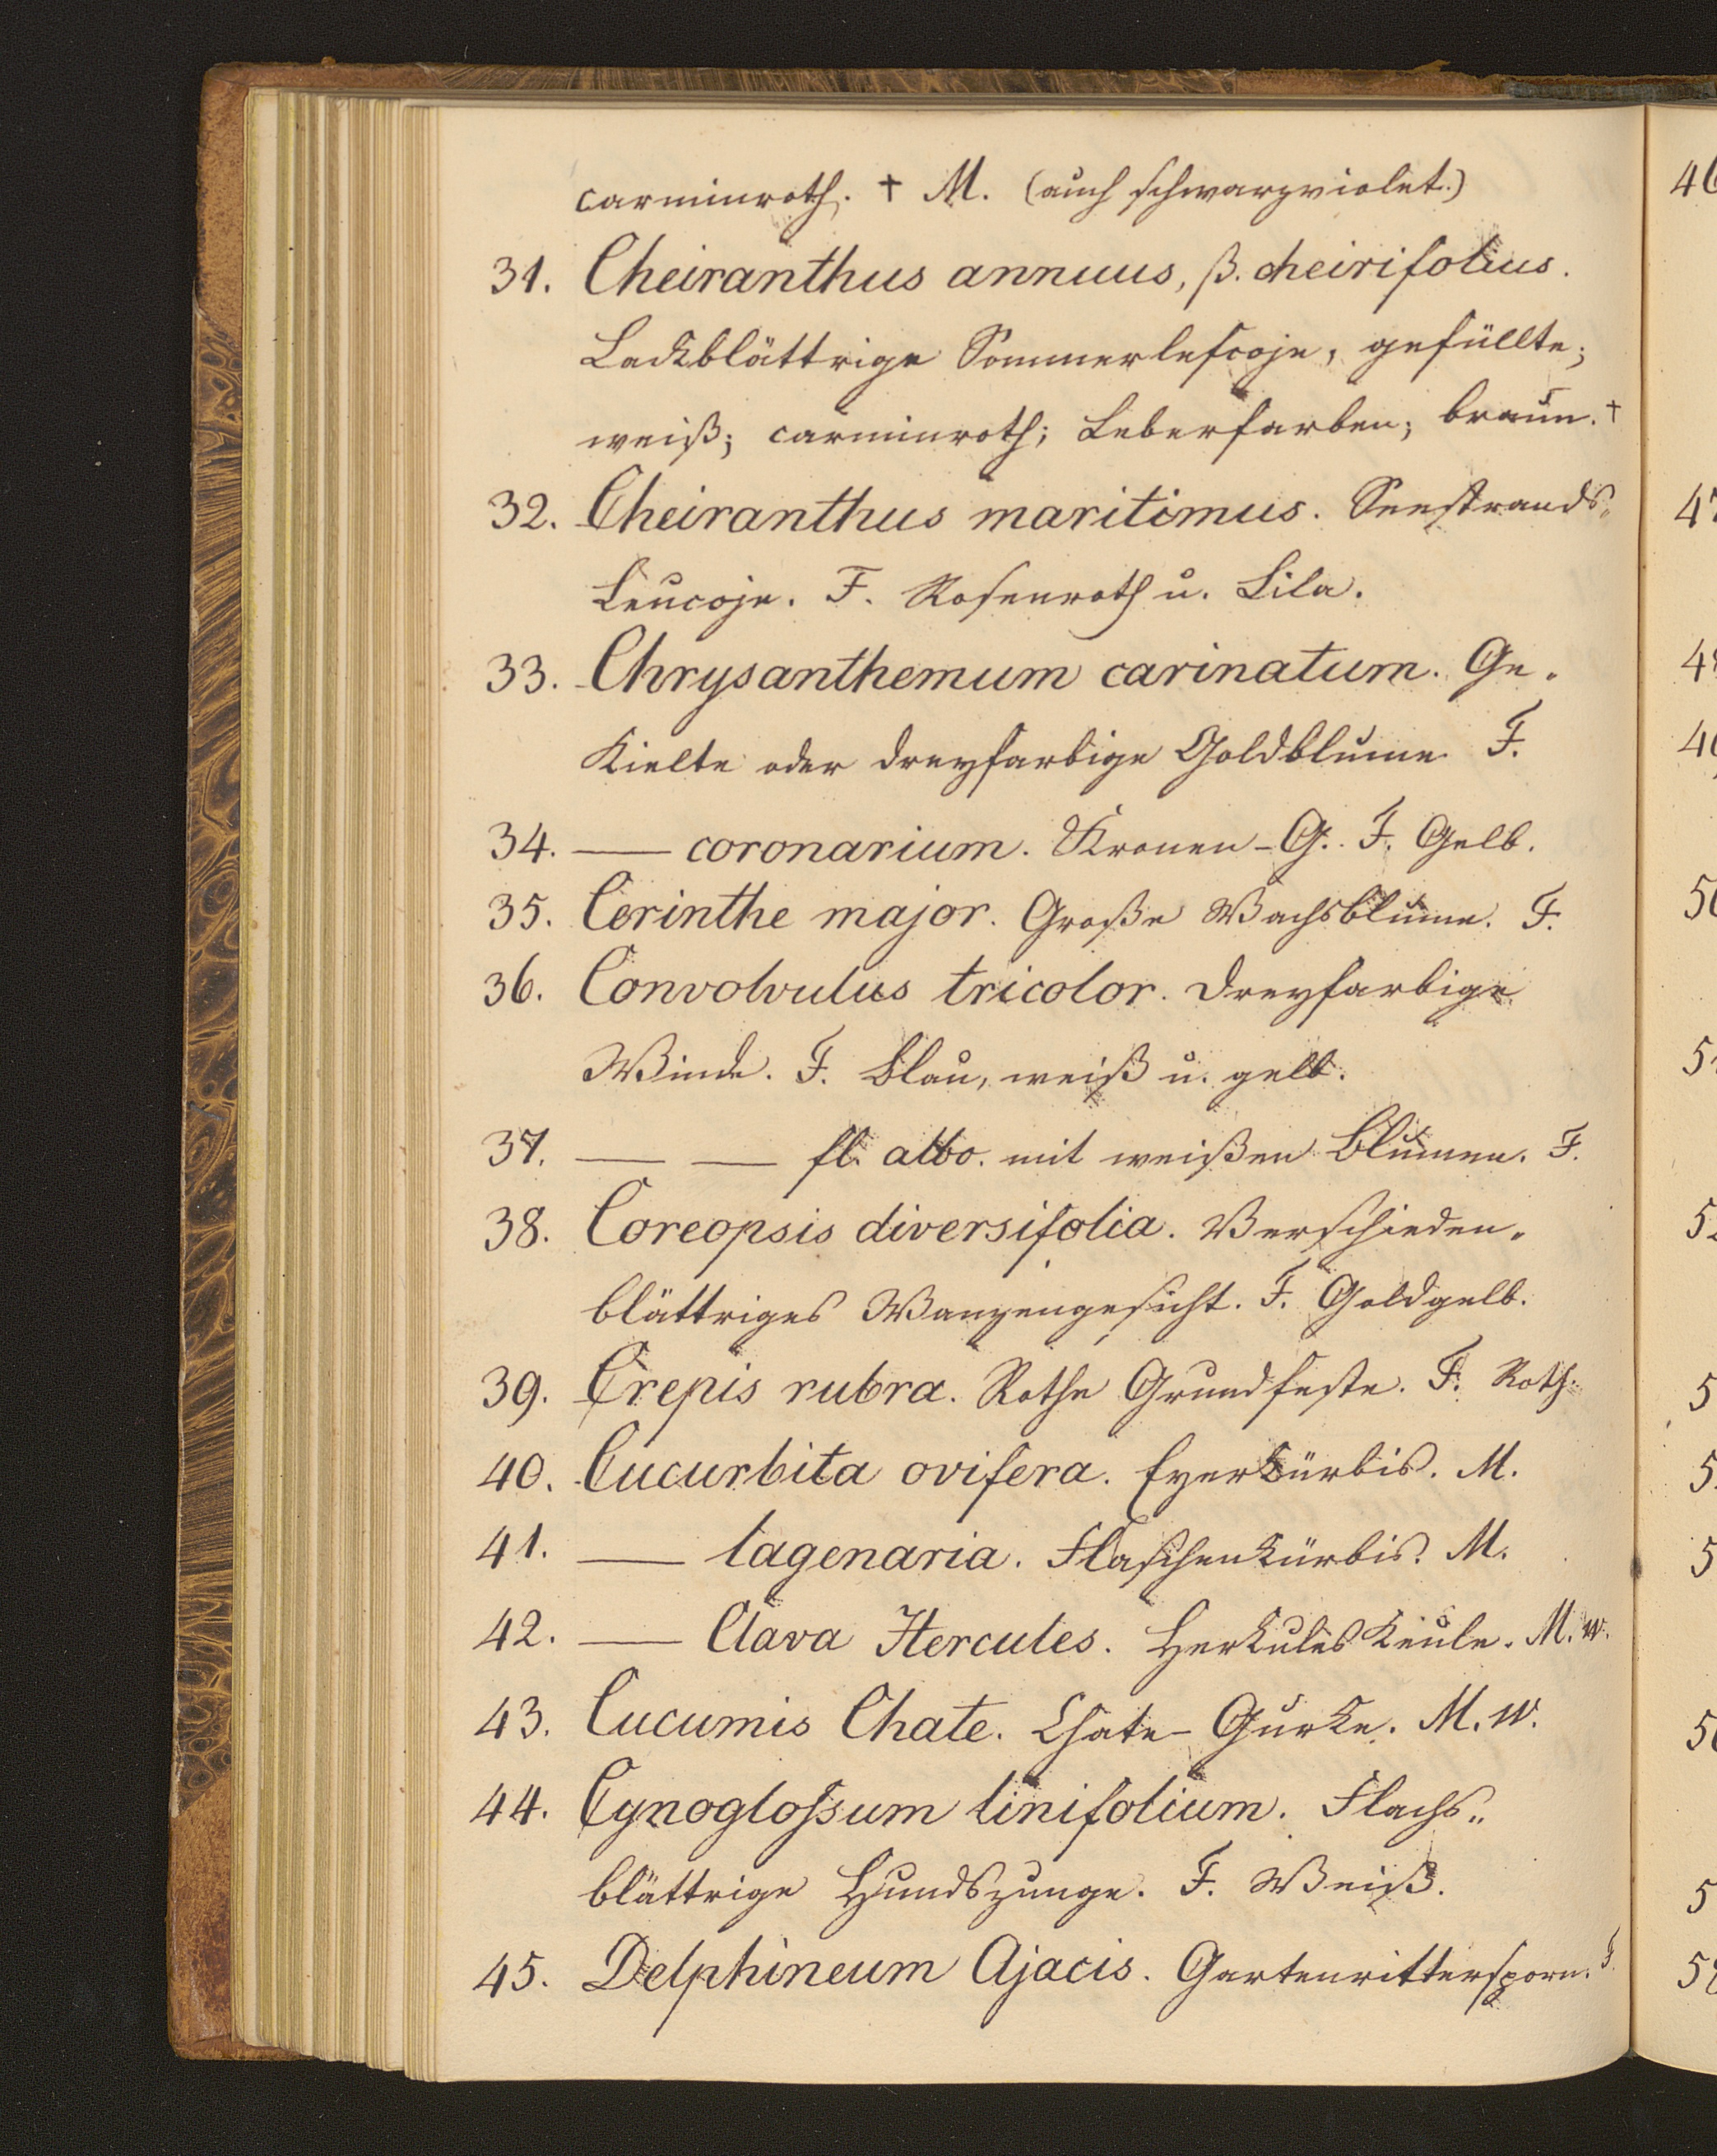 carminroth. † M. (auch schwarzviolet.)
31. Cheiranthus annuus, β. cheirifolius.
Lackblättrige Sommerlefcoje, gefüllte;
weiß; carminroth; Leberfarben; braun. †
32. Cheiranthus maritimus. Seestrands„
Leucoje. F. Rosenroth u. Lila.
33. Chrysanthemum carinatum. Ge„
Kielte oder dreyfarbige Goldblume F.
34. — coronarium. Kronen-G. F. Gelb.
35. Cerinthe major. Große Wachsblume. F.
36. Convolvulus tricolor. Dreyfarbige
Winde. F. Blau, weiß u. gelb.
37. — — fl. albo. mit weißen Blumen. F.
38. Coreopsis diversifolia. Verschieden„
blättriges Wanzengesicht. F. Goldgelb.
39. Crepis rubra. Rothe Grundfeste. F. Roth.
40. Cucurbita ovifera. Eyerkürbis. M.
41. — lagenaria. Flaschenkürbis. M.
42. — Clava Hercules. HerkulesKeule. M. w.
43. Cucumis Chate. Chate-Gurke. M. W.
44. Cynogloſsum linifolium. Flachs„
blättrige Hundszunge. F. Weiß.
45. Delphineum Ajacis. Gartenrittersporn. F.
46
47
48
5
5
5
5
5
5
5
58